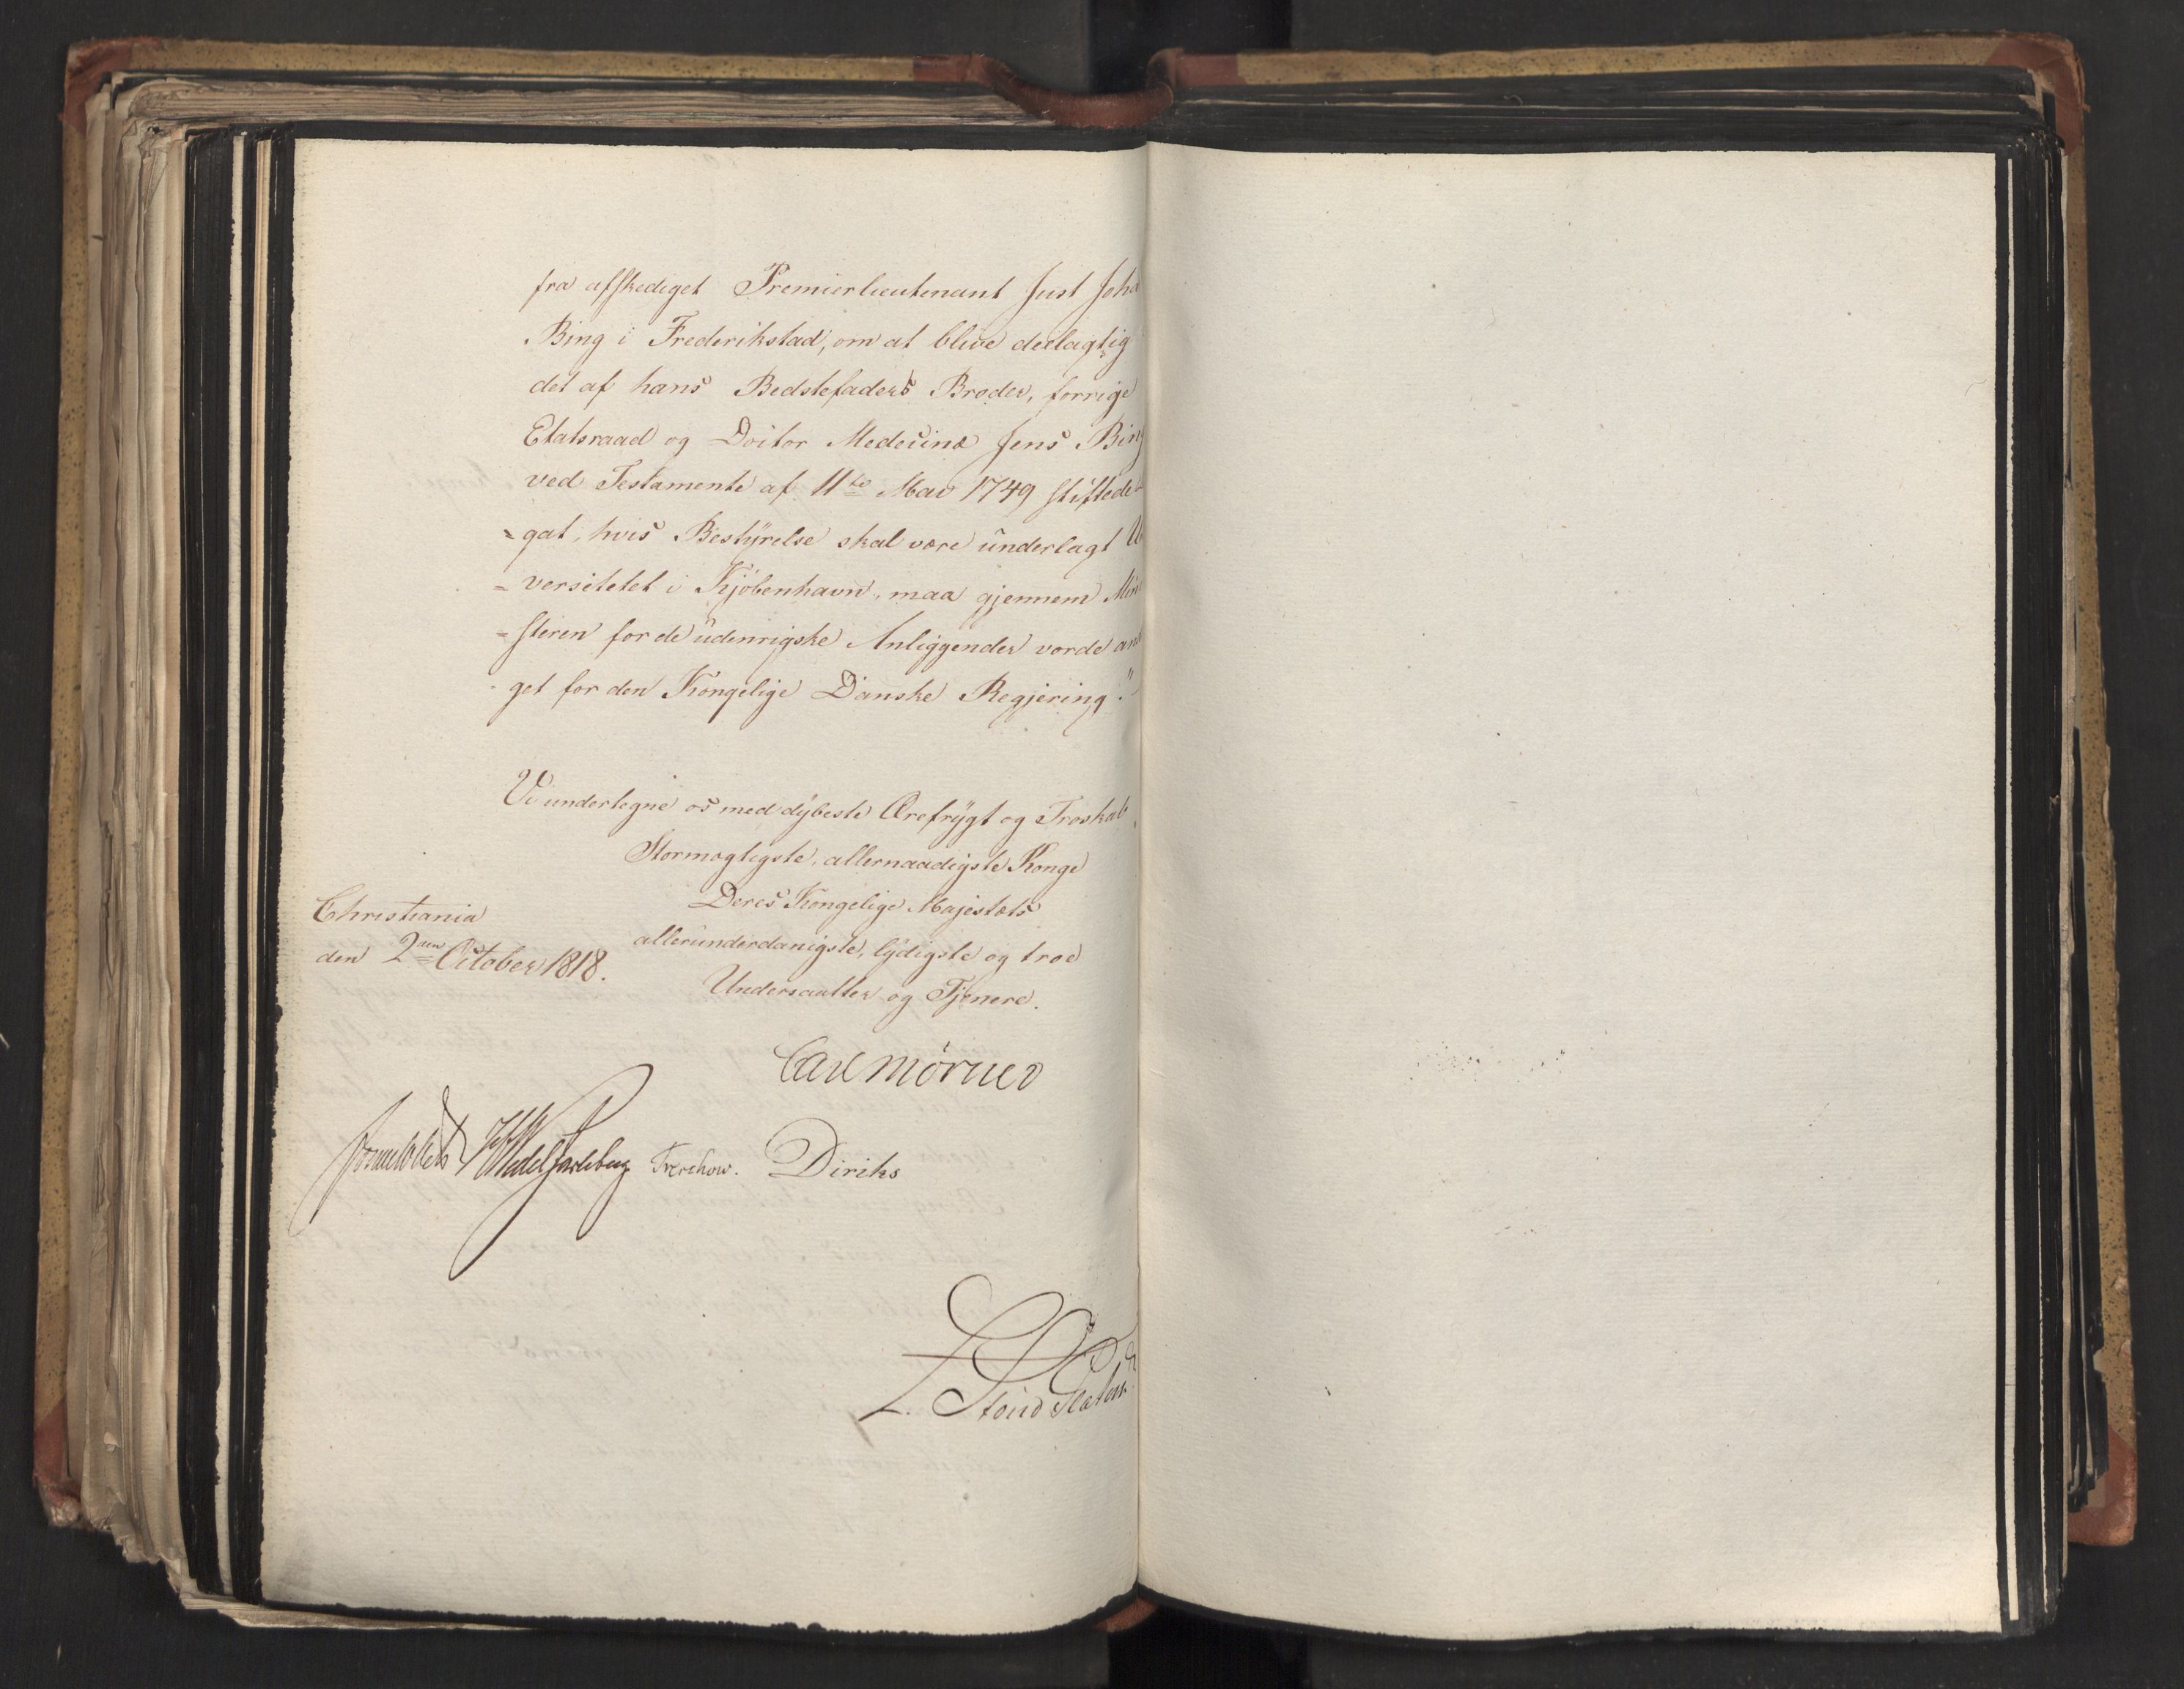 fra afskediget Premierlieutenant Just Joha
Bing i Frederikstad, om at blive deelagtig
det af hans Bedstefaders Broder, forrige
Etatsraad og Doctor Medecinæ Jens Bing
ved Testamente af 11te Mai 1749 stiftede
= gat, hvis Bestÿrelse skal være underlagt U
= versitetet i Kjöbenhavn, maa gjennem Min
= steren for de udenrigske Anliggender vorde an
get for den Kongelige Danske Regjering."
Vi undertegne os med dÿbeste Ærefrÿgt og Troskab
Stormægtigste, allernaadigste Konge
Deres Kongelige Majestæts
allerunderdanigste, lÿdigste og troe
Undersaatter og Tjenere.
Christiania
den 2den October 1818.
Carl Mörner
Sommelhielm HWedel Jarlsberg Treschow. Diriks